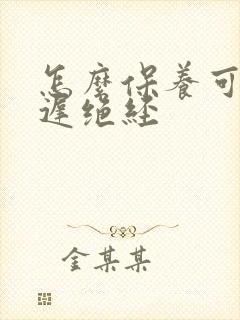 怎麼保養可
遲绝经
金某某